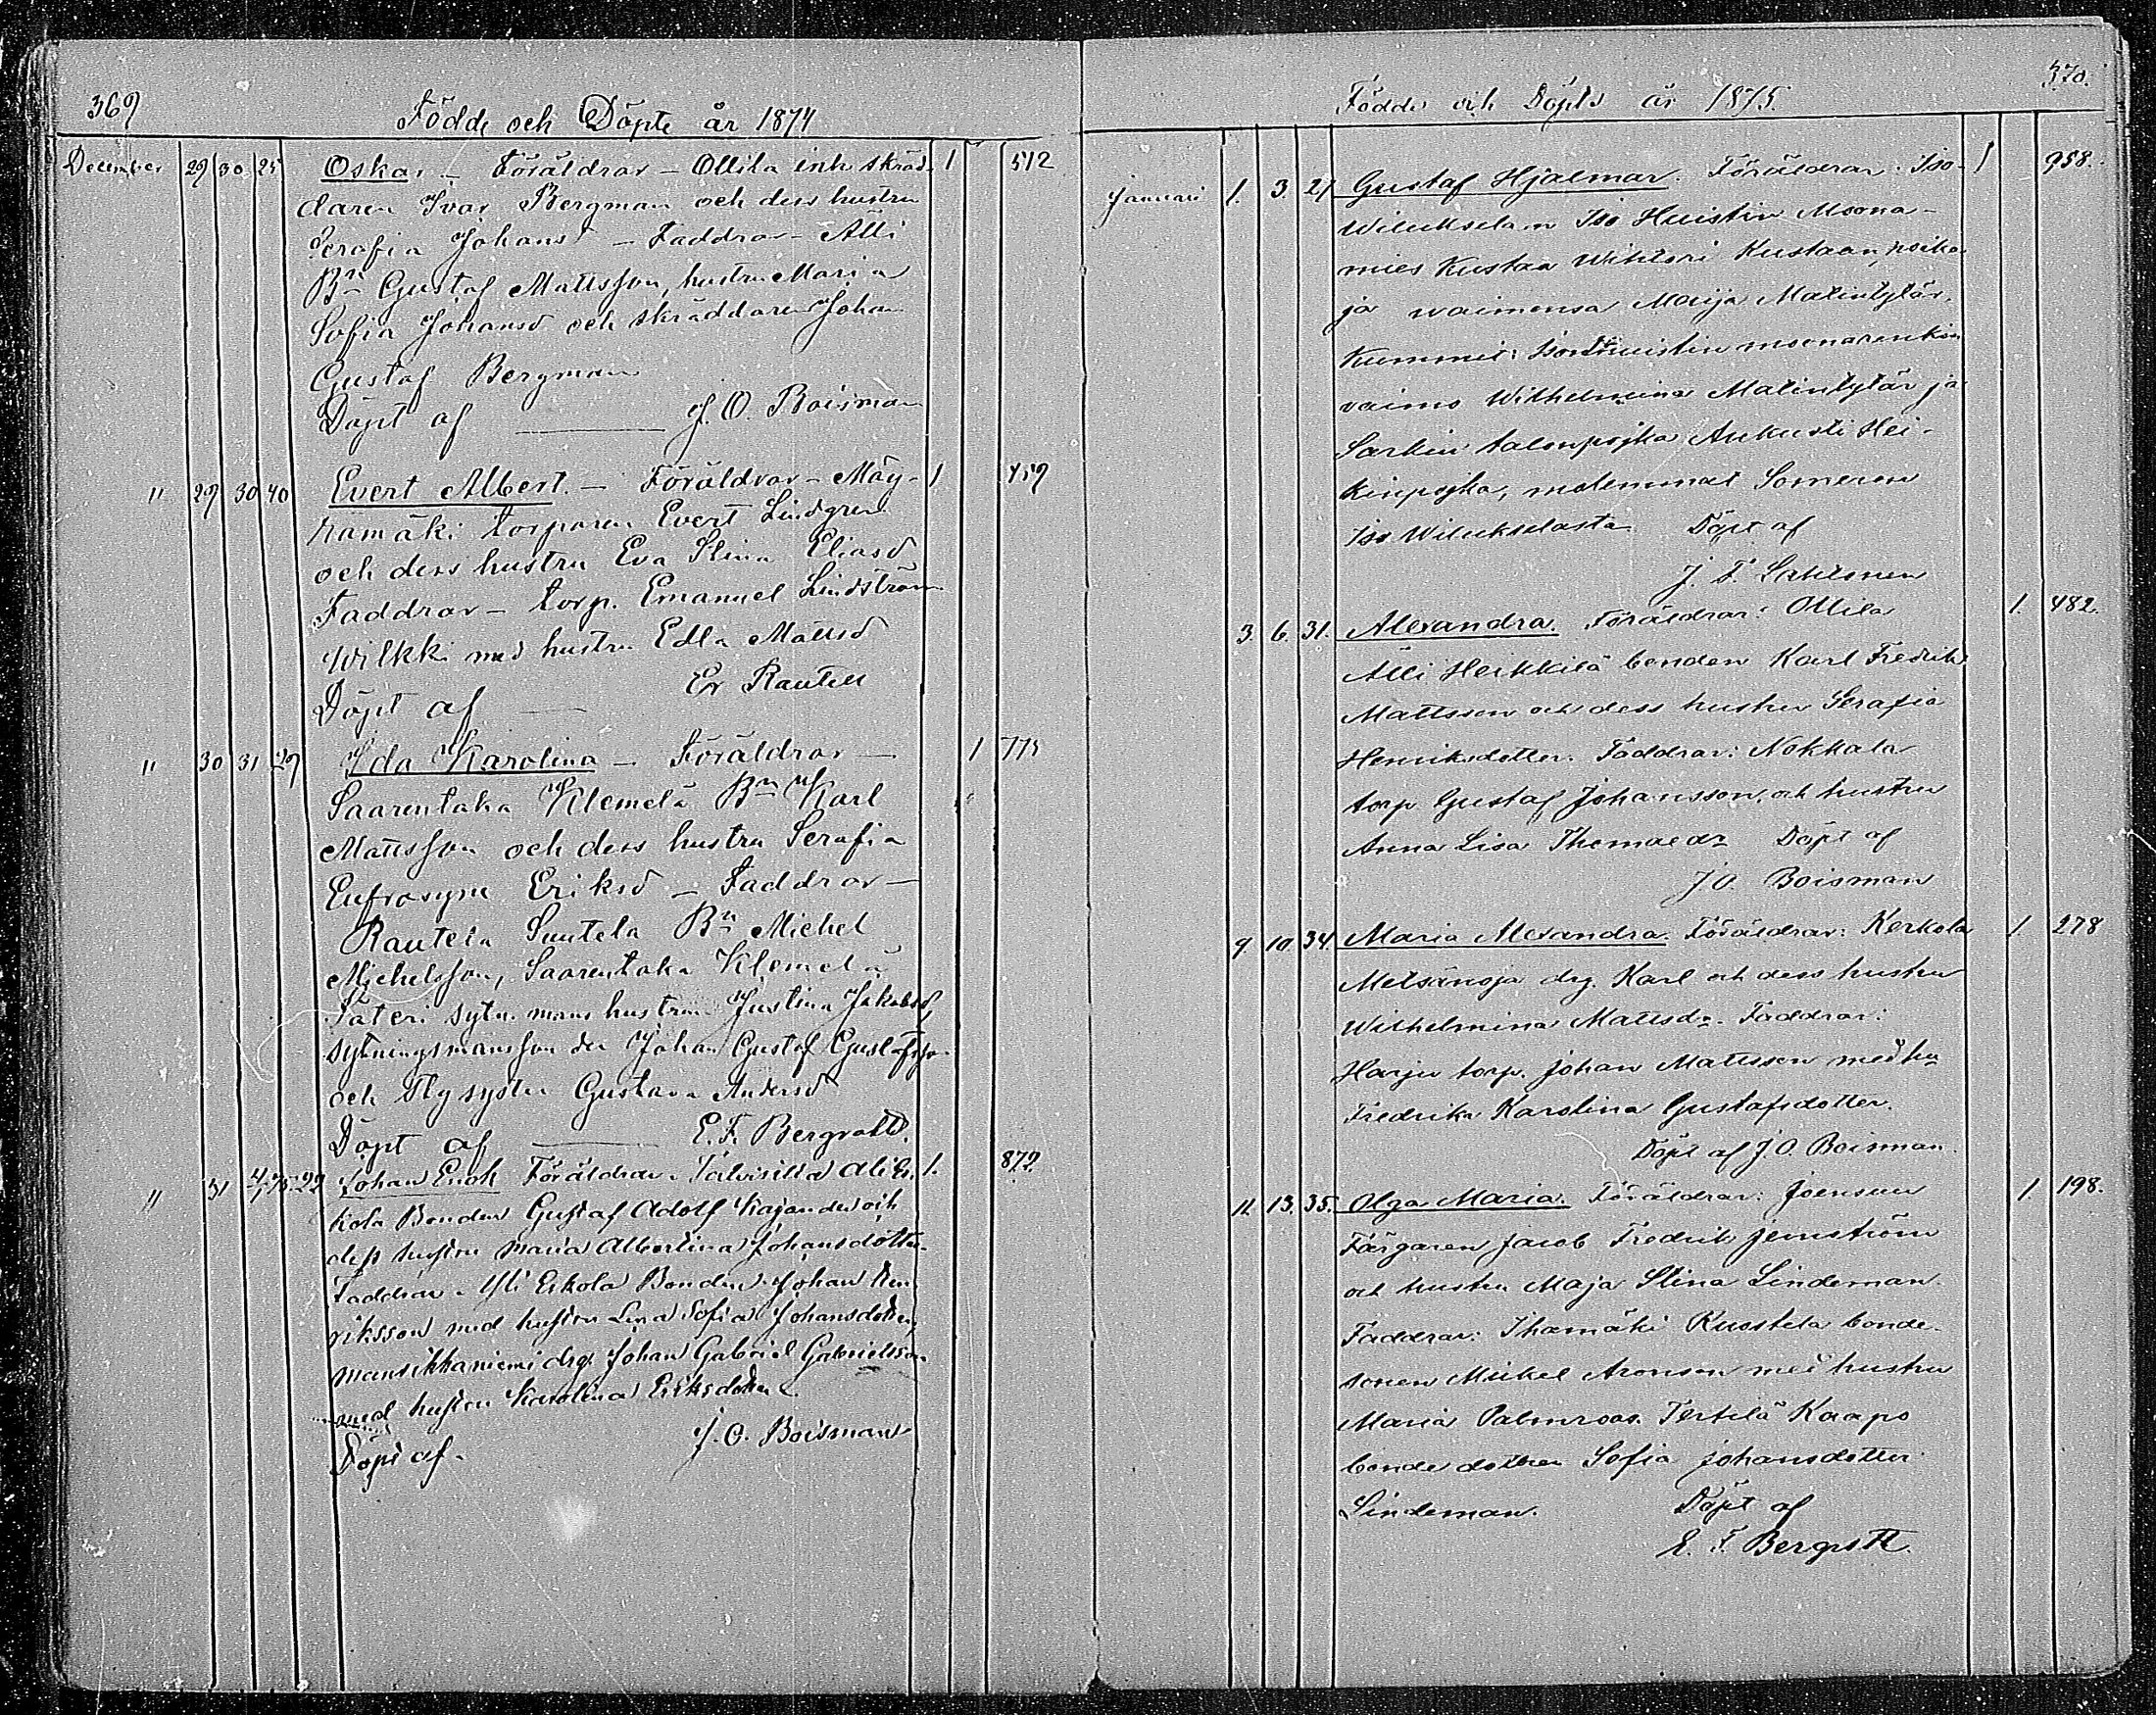 369
Födde och Döpte år 1874
December 29 30 25 Oskar – Föräldrar – Ollila inh. skräd- 1 512
daren Ivar Bergman och dess hustru
Serafia Johansd – Faddrar – Alli
Bn Gustaf Mattsson, hustru Maria
Sofia Johansd och skräddaren Johan
Gustaf Bergman
Döpt af — J. O. Boisman
" 29 30 40 Evert Albert. – Föräldrar – Mäy- 1 459
rämäki torparen Evert Lindgren
och dess hustru Eva Stina Eliasd
Faddrar – torp. Emanuel Lindström
Wilkki med hustru Edla Mattsd
Döpt af — Er Rautell
" 30 31 29 Ida Karolina – Föräldrar – 1 775
Saarentaka Klemelä Bn Karl
Mattsson och dess hustru Serafia
Eufrosyne Eriksd – Faddrar –
Rautela Suutela Bn Michel
Michelsson, Saarentaka Klemelä
Säteri sytn. mans hustru Justina Jakobsd,
sytningsmanssonen Johan Gustaf Gustafsson
och Gustava Andersd
Döpt af — E. F. Bergroth.
" 31 4/1 75. 22 Johan Enok Föräldrar. Talvisilla Ali Er. 1. 872
kola Bonden Gustaf Adolf Kajander och
dess hustru Maria Albertina Johansdotter.
Faddrar. Yli Erkola Bonden Johan Hen
riksson med hustru Lena Sofia Johansdotter,
Mansikkaniemi drg. Johan Gabriel Gabrielsson
med hustru Karolina Eriksdotter.
Döpt af. J. O. Boisman
370.
Födde och Döpte år 1875.
Januari 1. 3. 27 Gustaf Hjalmar. Föräldrar: Iso- 1 958.
Wiluksela n Iso Huistin Moona-
mies Kustaa Wihtori Kustaan poika
ja waimonsa Maija Matintytär,
Kummit: Isonhuistin moonarenkin
vaimo Wilhelmiina Matintytär ja
Sarkin talonpojka Aukusti Hei-
kinpojka, molemmat Someron
Iso Wilukselasta. Döpt af
J. F. Sahlonen
3 6. 31. Alexandra. Föräldrar: Ollila 1. 482.
Alli Heikkilä bonden Karl Fredrik
Mattsson och dess hustru Serafia
Henriksdotter. Faddrar: Nokkala
torp Gustaf Johansson, och hustru
Anna Lisa Thomaedr Döpt af
J O. Boisman
9 10. 34. Maria Alexandra. Föräldrar: Kerkola 1. 278
Metsänoja drg. Karl och dess hustru
Wilhelmina Mattsdr. Faddrar:
Harju torp. Johan Mattsson med hu
Fredrika Karolina Gustafsdotter.
Döpt af J. O. Boisman.
11. 13. 35. Olga Maria. Föräldrar: Joensuu 1. 198.
Färgaren Jacob Fredrik Jernström
och hustru Maja Stina Lindeman.
Faddrar: Ihamäki Ruostela bonde-
sonen Mickel Aronson med hustru
Maria Palmroos. Terttilä Kaapo
bonde dotter Sofia Johansdotter
Lindeman. Döpt af
E. F. Bergroth.